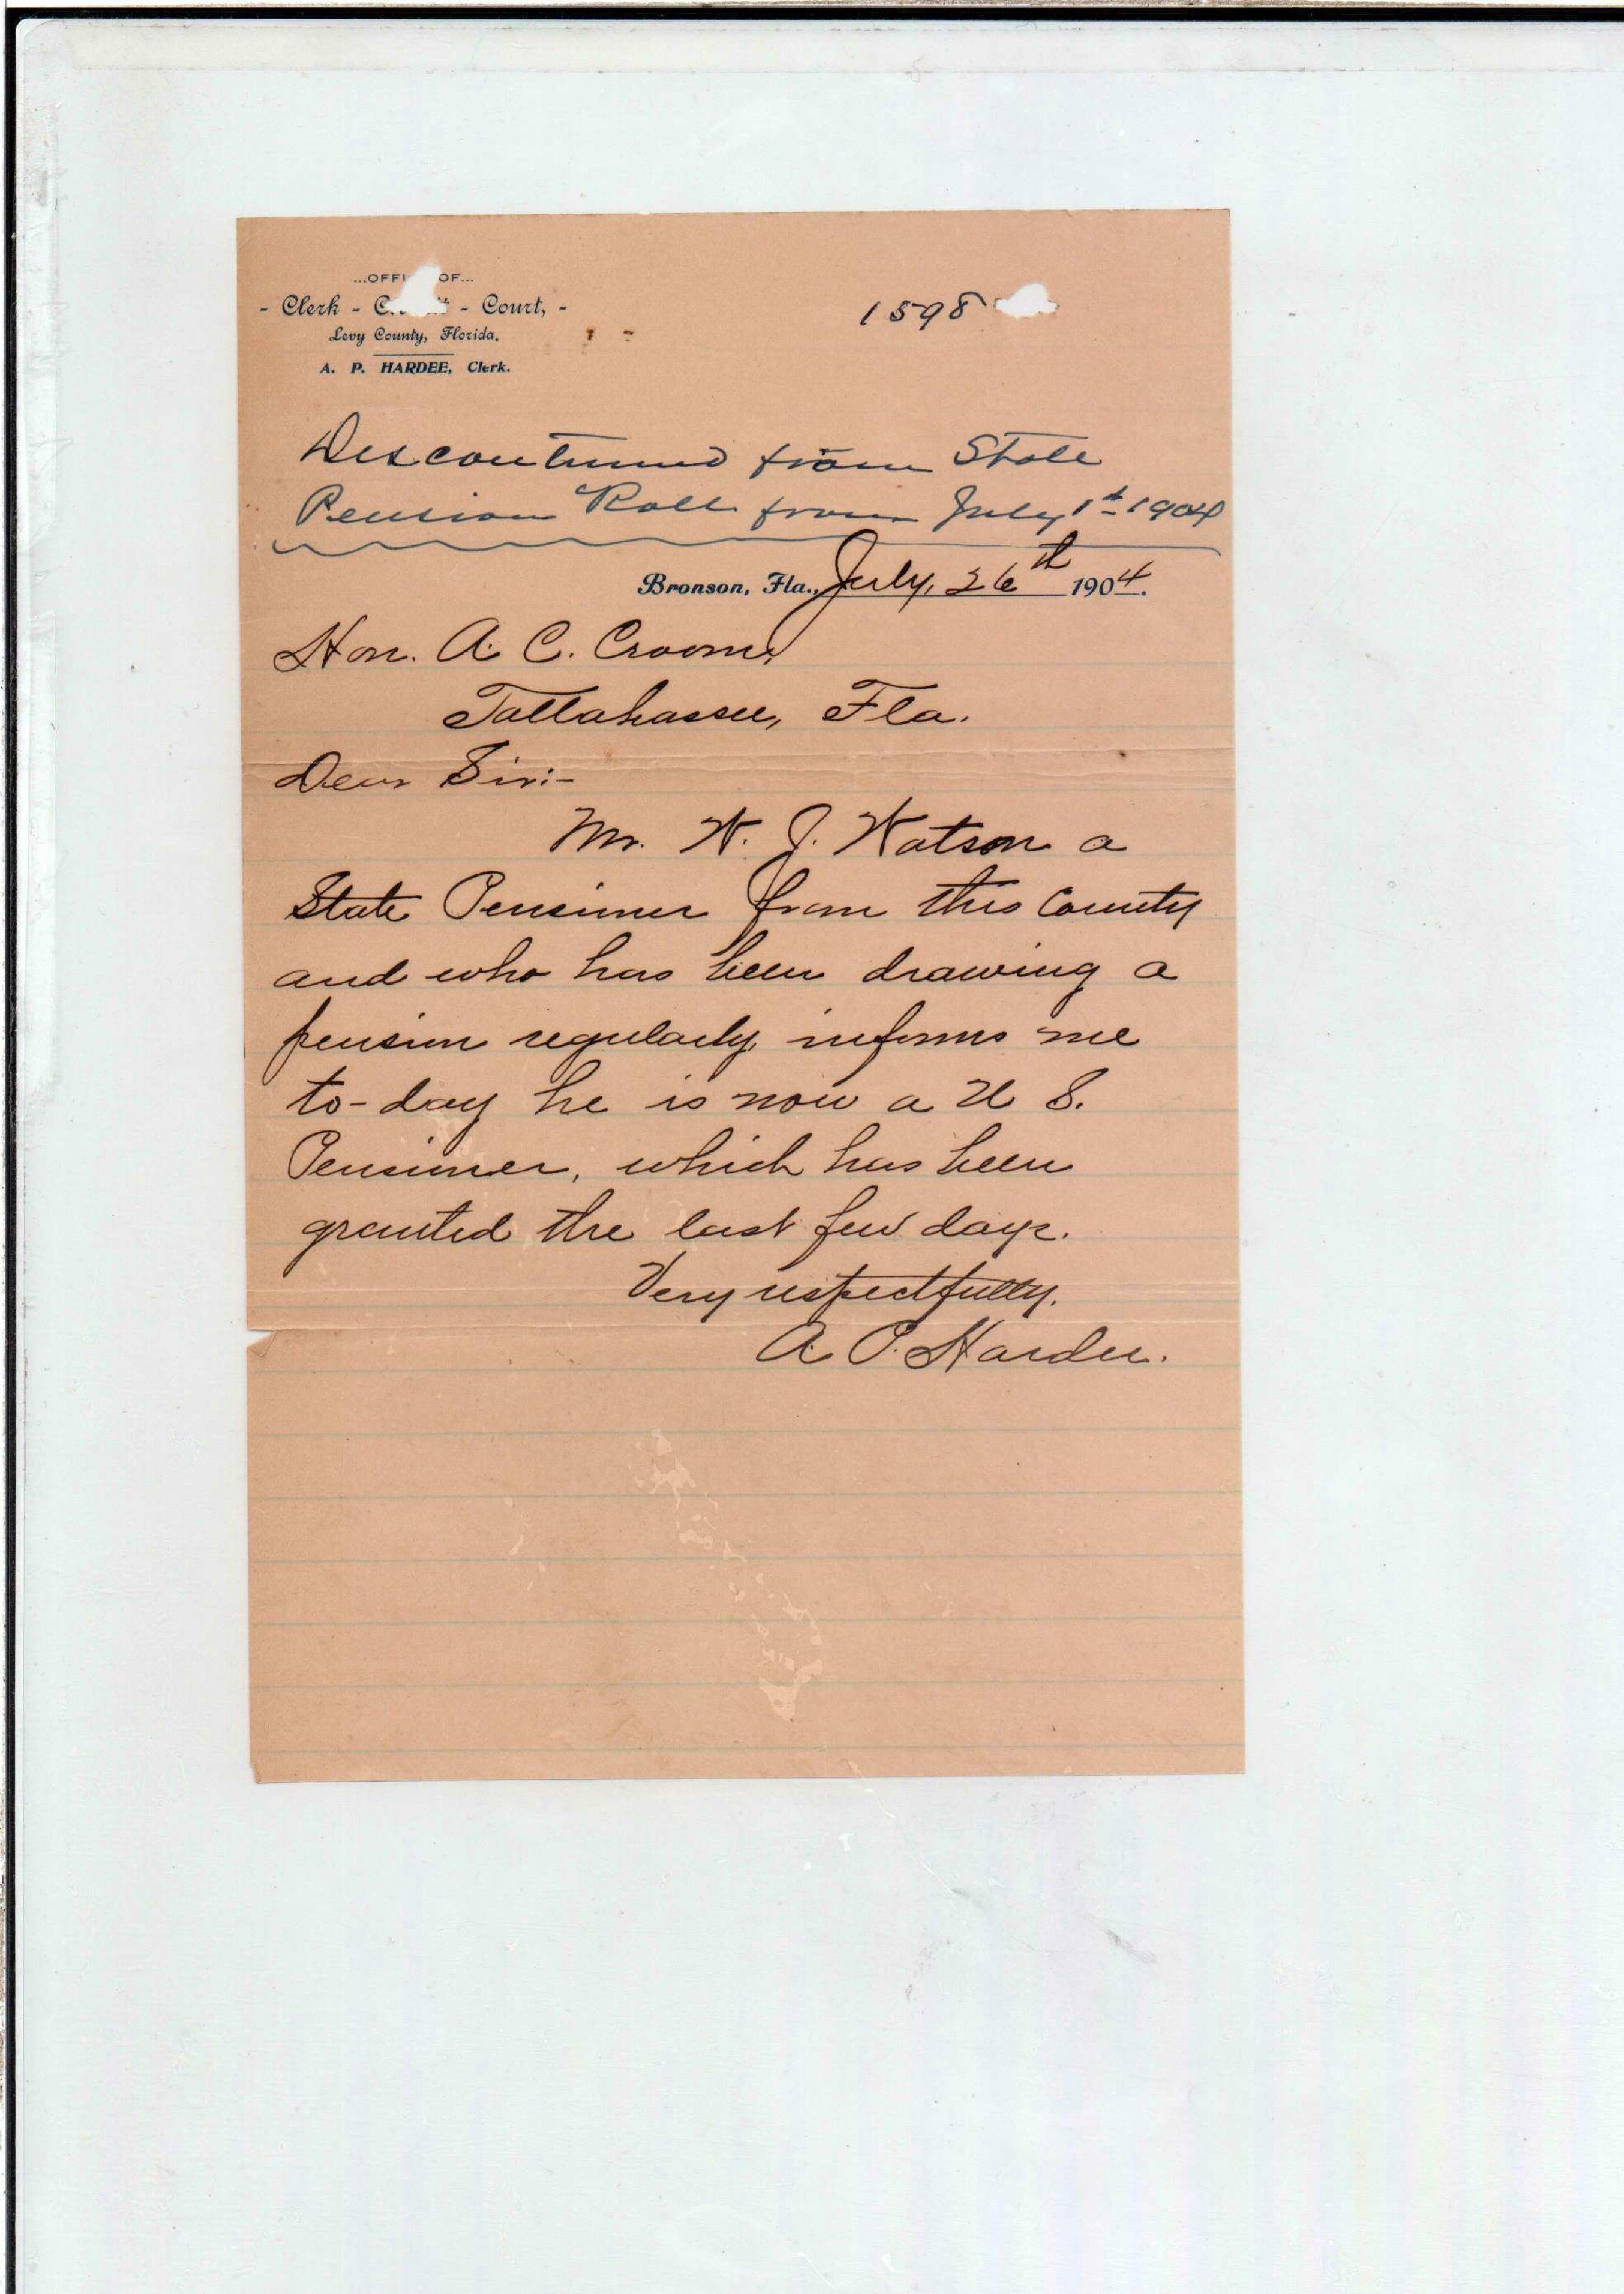 ...OFFI OF...
- Clerk - C - Court, -
Levy County, Florida.
A. P. HARDEE, Clerk.
1598
Discontinued from State
Pension Roll from July 1st 1904
Bronson, Fla., July, 26th 1904.
Hon. A. C. Croom,
Tallahassee, Fla.
Dear Sir:-
Mr. W. J. Watson a
State Pensioner from this County
and who has been drawing a
pension regularly, informs me
to-day he is now a U S.
Pensioner, which has been
granted the last few days.
Very respectfully.
A. P. Hardee.